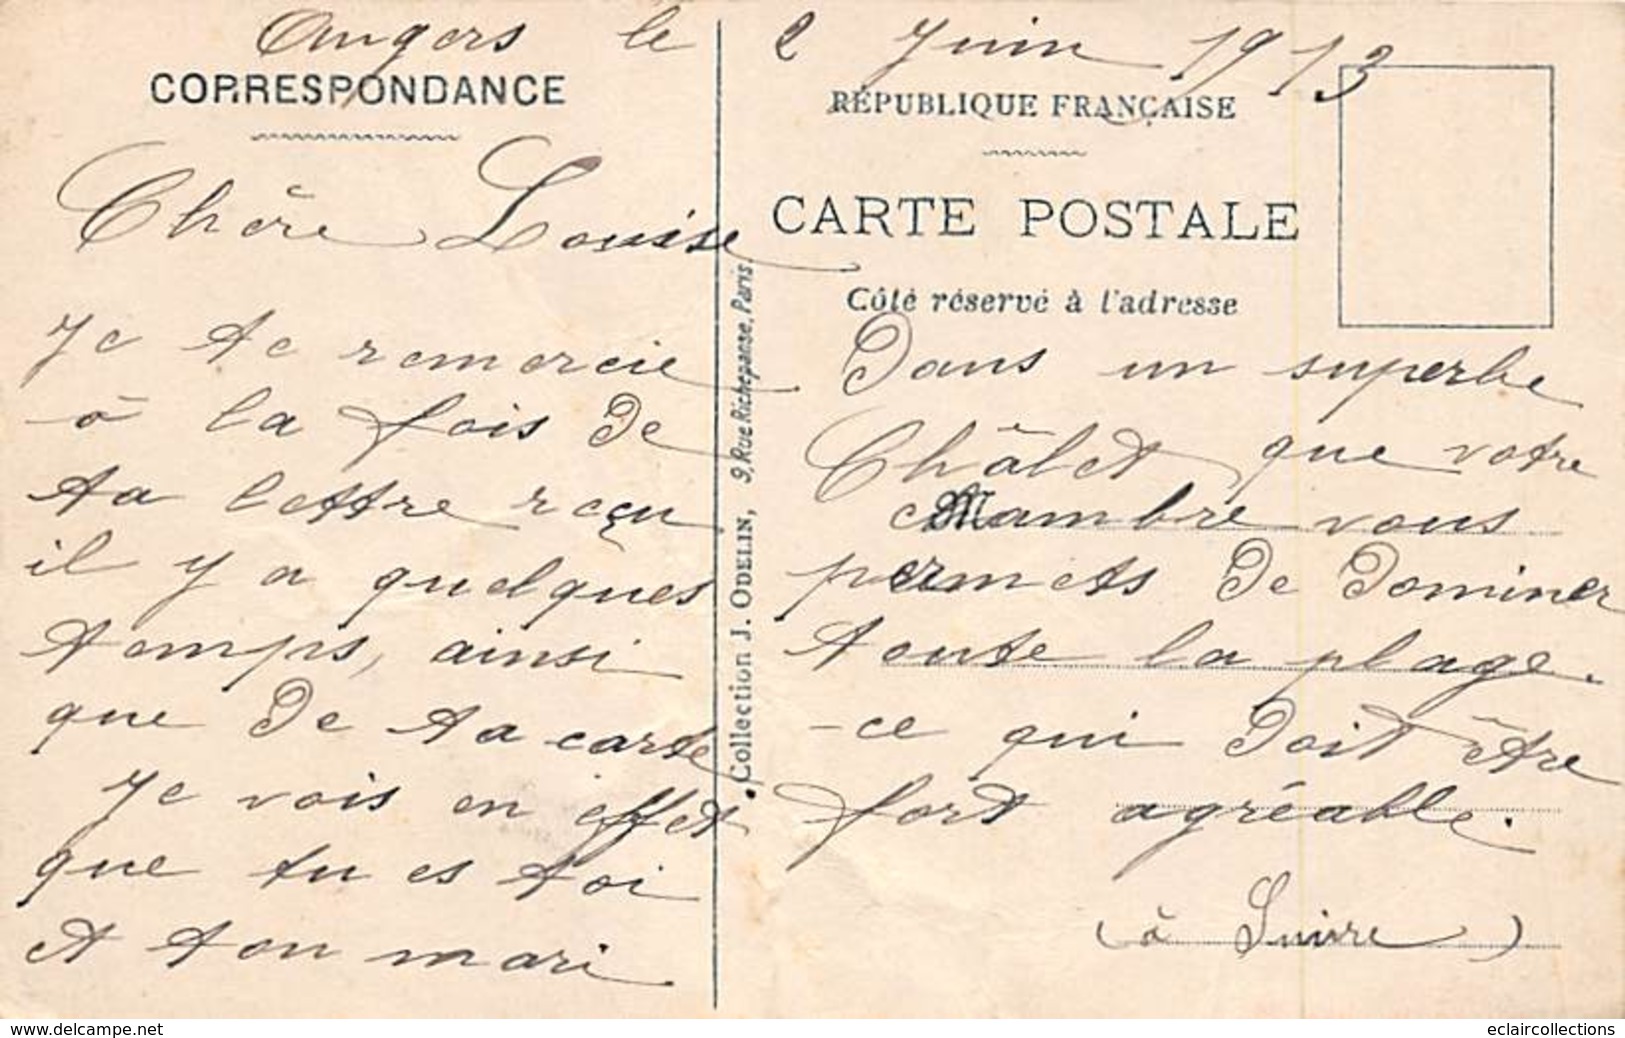 Angers le 2 Juin 1913
CORRESPONDANCE
Chère Louise
Je te remercie
à la fois de
ta lettre reçu
il y a quelques
temps, ainsi
que de ta carte
Je vois en effet
que tu es toi
et ton mari
Collection J. ODELIN, 9, Rue Richepanse, Paris.
RÉPUBLIQUE FRANÇAISE
CARTE POSTALE
Côté réservé à l'adresse
Dans un superbe
Châlet que votre
Mambre vous
permets de dominer
toute la plage.
-ce qui doit être
fort agréable.
(à Suivre)
www.delcampe.net
eclaircollections